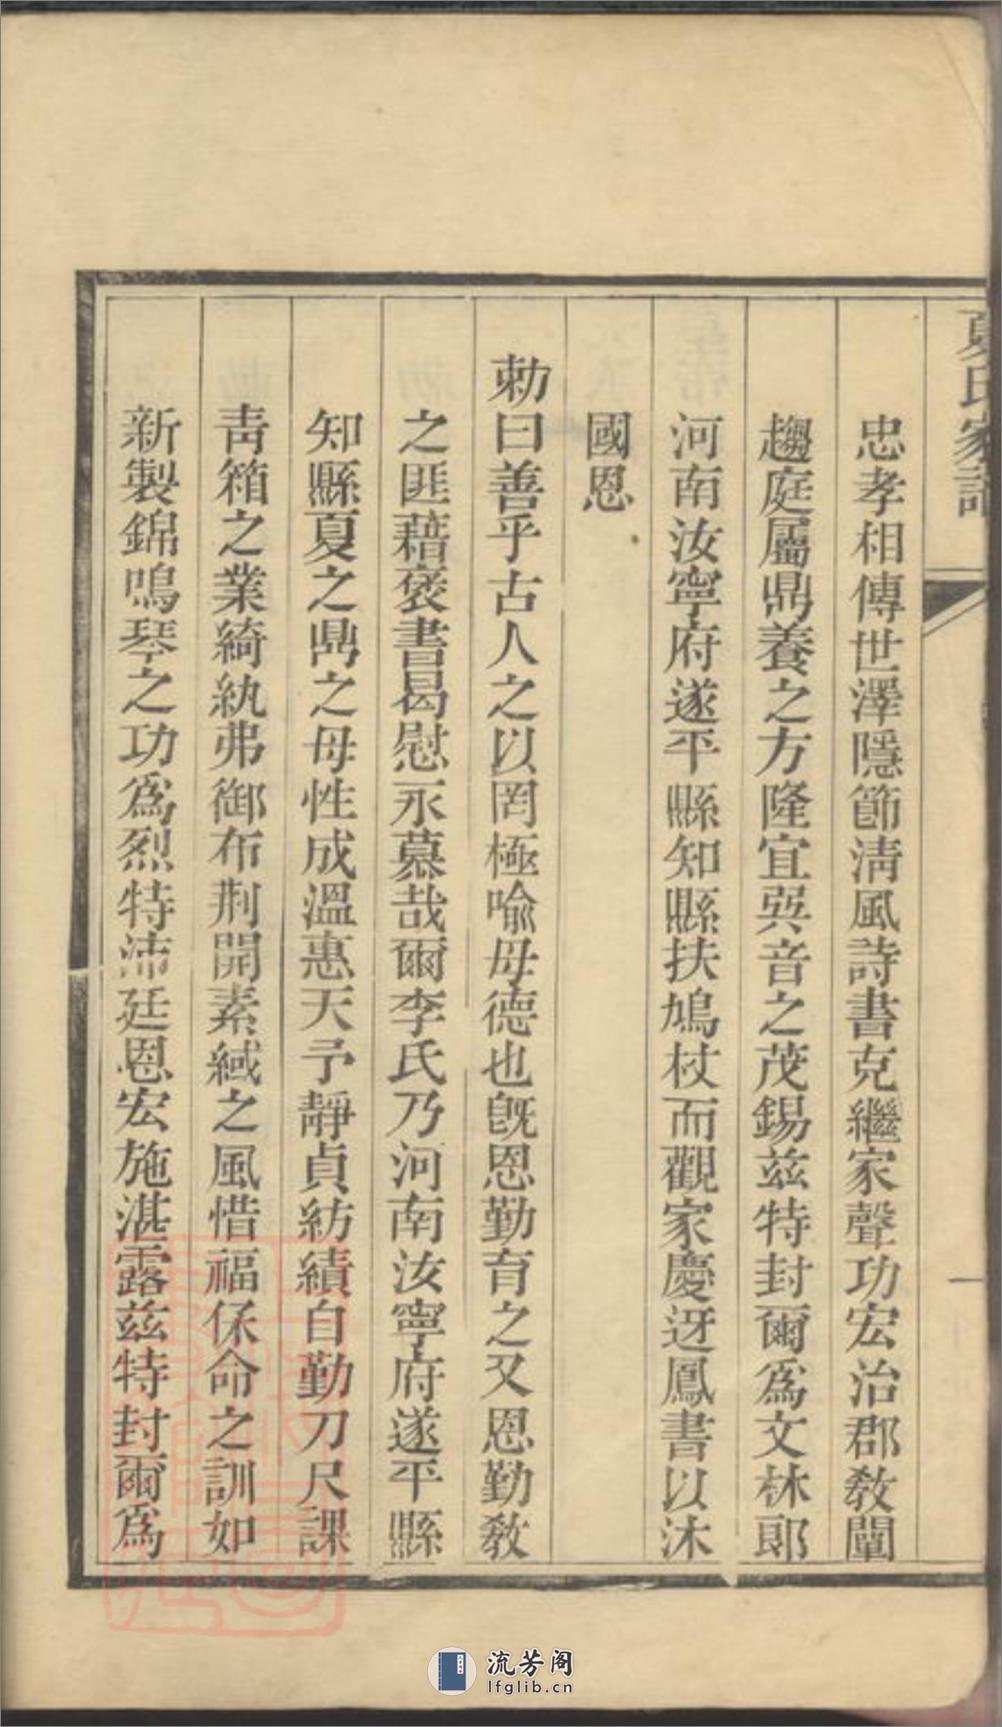 夏氏家譜
忠孝相傳世澤隱節清風詩書克繼家聲功宏治郡教闡
趨庭屬鼎養之方隆宜巽音之茂錫茲特封爾為文林郎
河南汝寧府遂平縣知縣扶鳩杖而觀家慶迓鳳書以沐
國恩
勅曰善乎古人之以罔極喻母德也旣恩勤育之又恩勤敎
之匪藉褒書曷慰永慕哉爾李氏乃河南汝寧府遂平縣
知縣夏之鼎之母性成溫惠天予靜貞紡績自勤刀尺課
靑箱之業綺紈弗御布荆開素緎之風惜福係命之訓如
新製錦鳴琴之功爲烈特沛廷恩宏施湛露茲特封爾爲
流芳阁
lfglib.cn